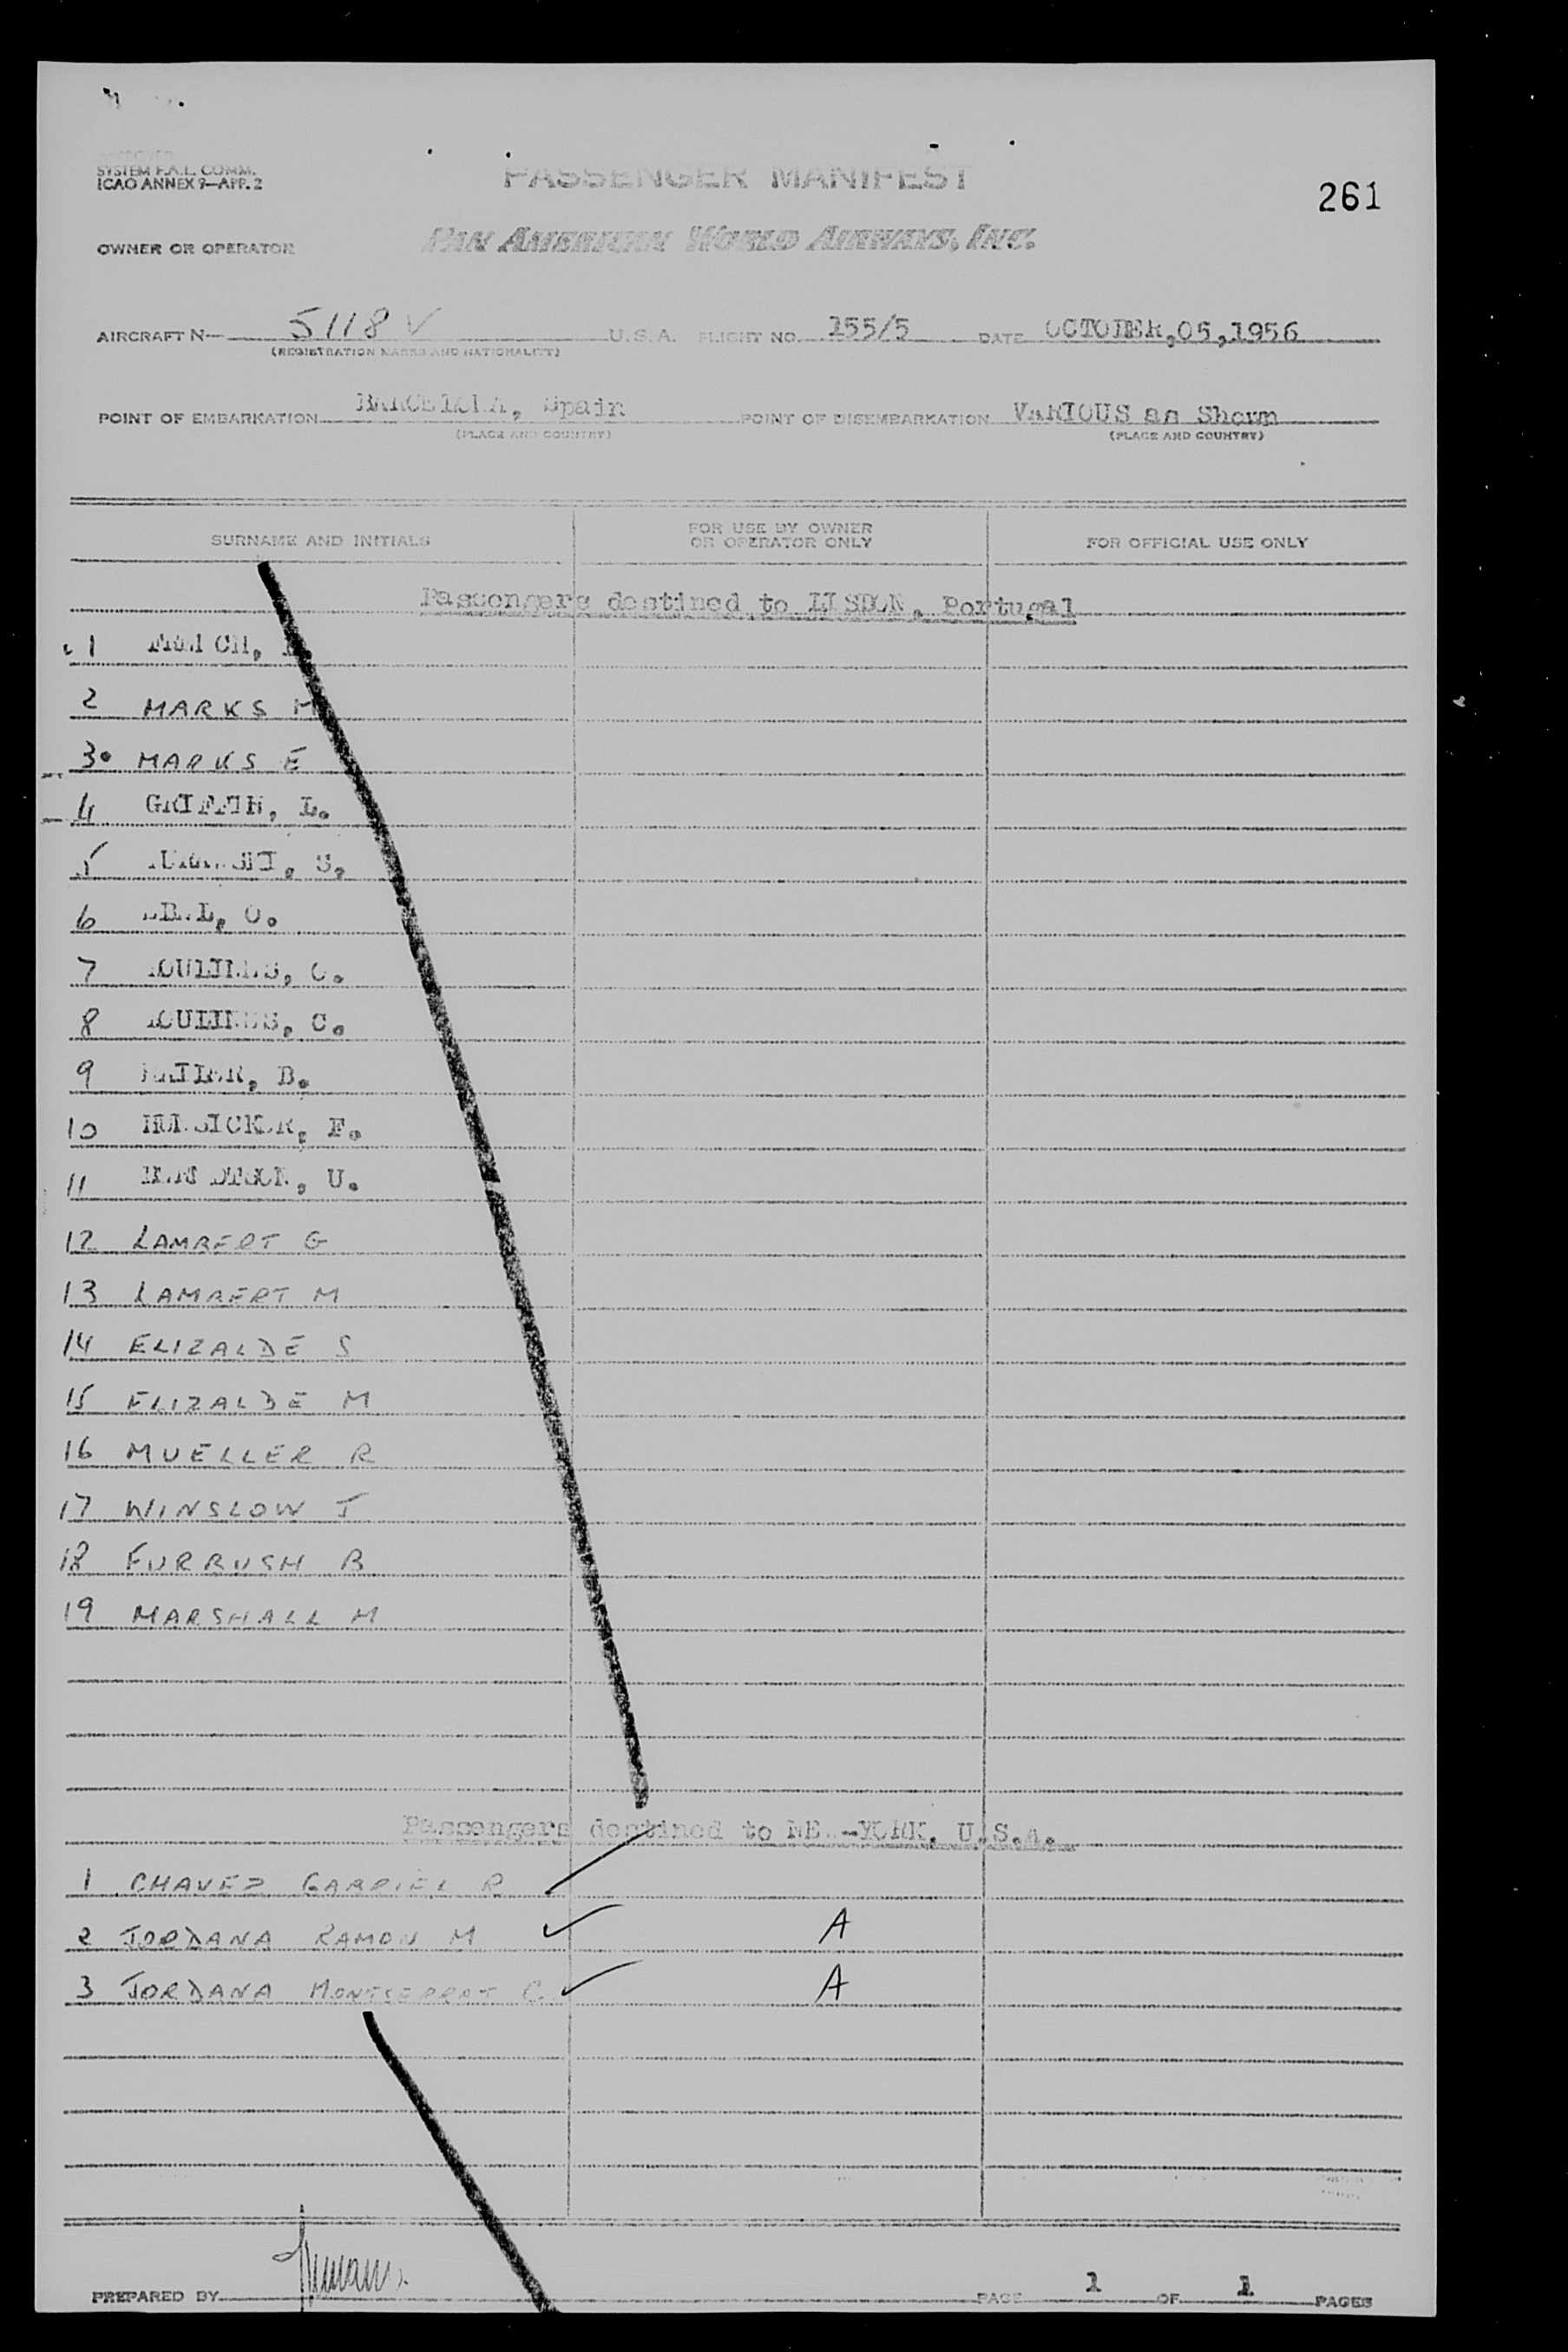 SYSTEM F.A.L. COMM.
ICAO ANNEX 9—APP. 2
PASSENGER MANIFEST
261
OWNER OR OPERATOR
PAN AMERICAN WORLD AIRWAYS, INC.
AIRCRAFT N— 5118 V U.S.A. FLIGHT NO. 155/5 DATE OCTOBER,05,1956
(REGISTRATION MARKS AND NATIONALITY)
POINT OF EMBARKATION BARCELONA, Spain POINT OF DISEMBARKATION VARIOUS as Shown
(PLACE AND COUNTRY) (PLACE AND COUNTRY)
SURNAME AND INITIALS FOR USE BY OWNER OR OPERATOR ONLY FOR OFFICIAL USE ONLY
Passengers destined to LISBON, Portugal
1
2 MARKS M
3. MARKS E
4 GRIFFIN, L.
5 S.
6
7 C.
8 C.
9 B.
10 F.
11 U.
12 LAMBERT G
13 LAMBERT M
14 ELIZALDE S
15 ELIZALDE M
16 MUELLER R
17 WINSLOW J
18 FURBUSH B
19 MARSHALL M
Passengers destined to NEW-YORK, U.S.A.
1 CHAVEZ GABRIEL R
2 JORDANA RAMON M ✓ A
3 JORDANA MONTSERRAT C. ✓ A
PREPARED BY PAGE 1 OF 1 PAGES